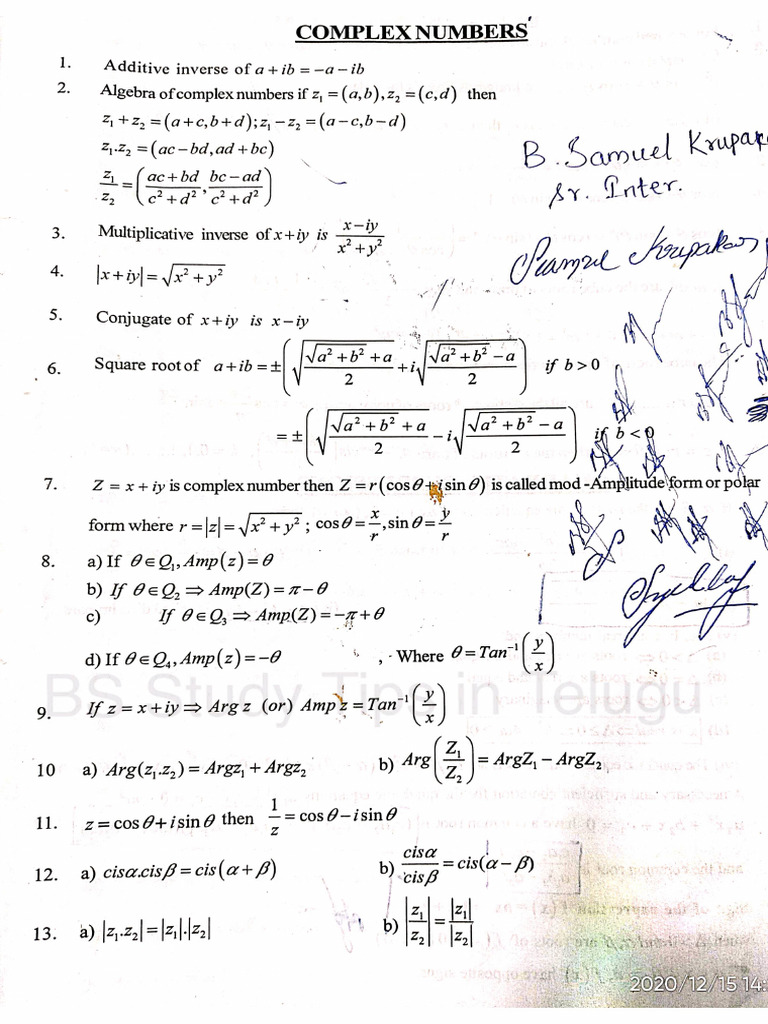 COMPLEX NUMBERS
1. Additive inverse of a + ib = −a − ib
2. Algebra of complex numbers if z₁ = (a,b), z₂ = (c,d) then
z₁ + z₂ = (a+c, b+d); z₁ − z₂ = (a−c, b−d)
z₁.z₂ = (ac − bd, ad + bc)
z₁/z₂ = ((ac + bd)/(c² + d²), (bc − ad)/(c² + d²))
B. Samuel Krupak
Sr. Inter.
3. Multiplicative inverse of x + iy is (x−iy)/(x² + y²)
Samuel Krupakar
4. |x + iy| = √(x² + y²)
5. Conjugate of x + iy is x − iy
6. Square root of a + ib = ±(√((√(a² + b²) + a)/2) + i√((√(a² + b²) − a)/2)) if b > 0
= ±(√((√(a² + b²) + a)/2) − i√((√(a² + b²) − a)/2)) if b < 0
7. Z = x + iy is complex number then Z = r(cosθ + i sinθ) is called mod -Amplitude form or polar
form where r = |z| = √(x² + y²) ; cosθ = x/r, sinθ = y/r
8. a) If θ ∈ Q₁, Amp(z) = θ
b) If θ ∈ Q₂ ⇒ Amp(Z) = π − θ
c) If θ ∈ Q₃ ⇒ Amp(Z) = −π + θ
d) If θ ∈ Q₄, Amp(z) = −θ , Where θ = Tan⁻¹(y/x)
BS Study Tips in Telugu
9. If z = x + iy ⇒ Arg z (or) Amp z = Tan⁻¹(y/x)
10 a) Arg(z₁.z₂) = Argz₁ + Argz₂ b) Arg(Z₁/Z₂) = ArgZ₁ − ArgZ₂
11. z = cosθ + i sinθ then 1/z = cosθ − i sinθ
12. a) cisα.cisβ = cis(α + β) b) cisα/cisβ = cis(α − β)
13. a) |z₁.z₂| = |z₁|.|z₂| b) |z₁/z₂| = |z₁|/|z₂|
2020/12/15 14: